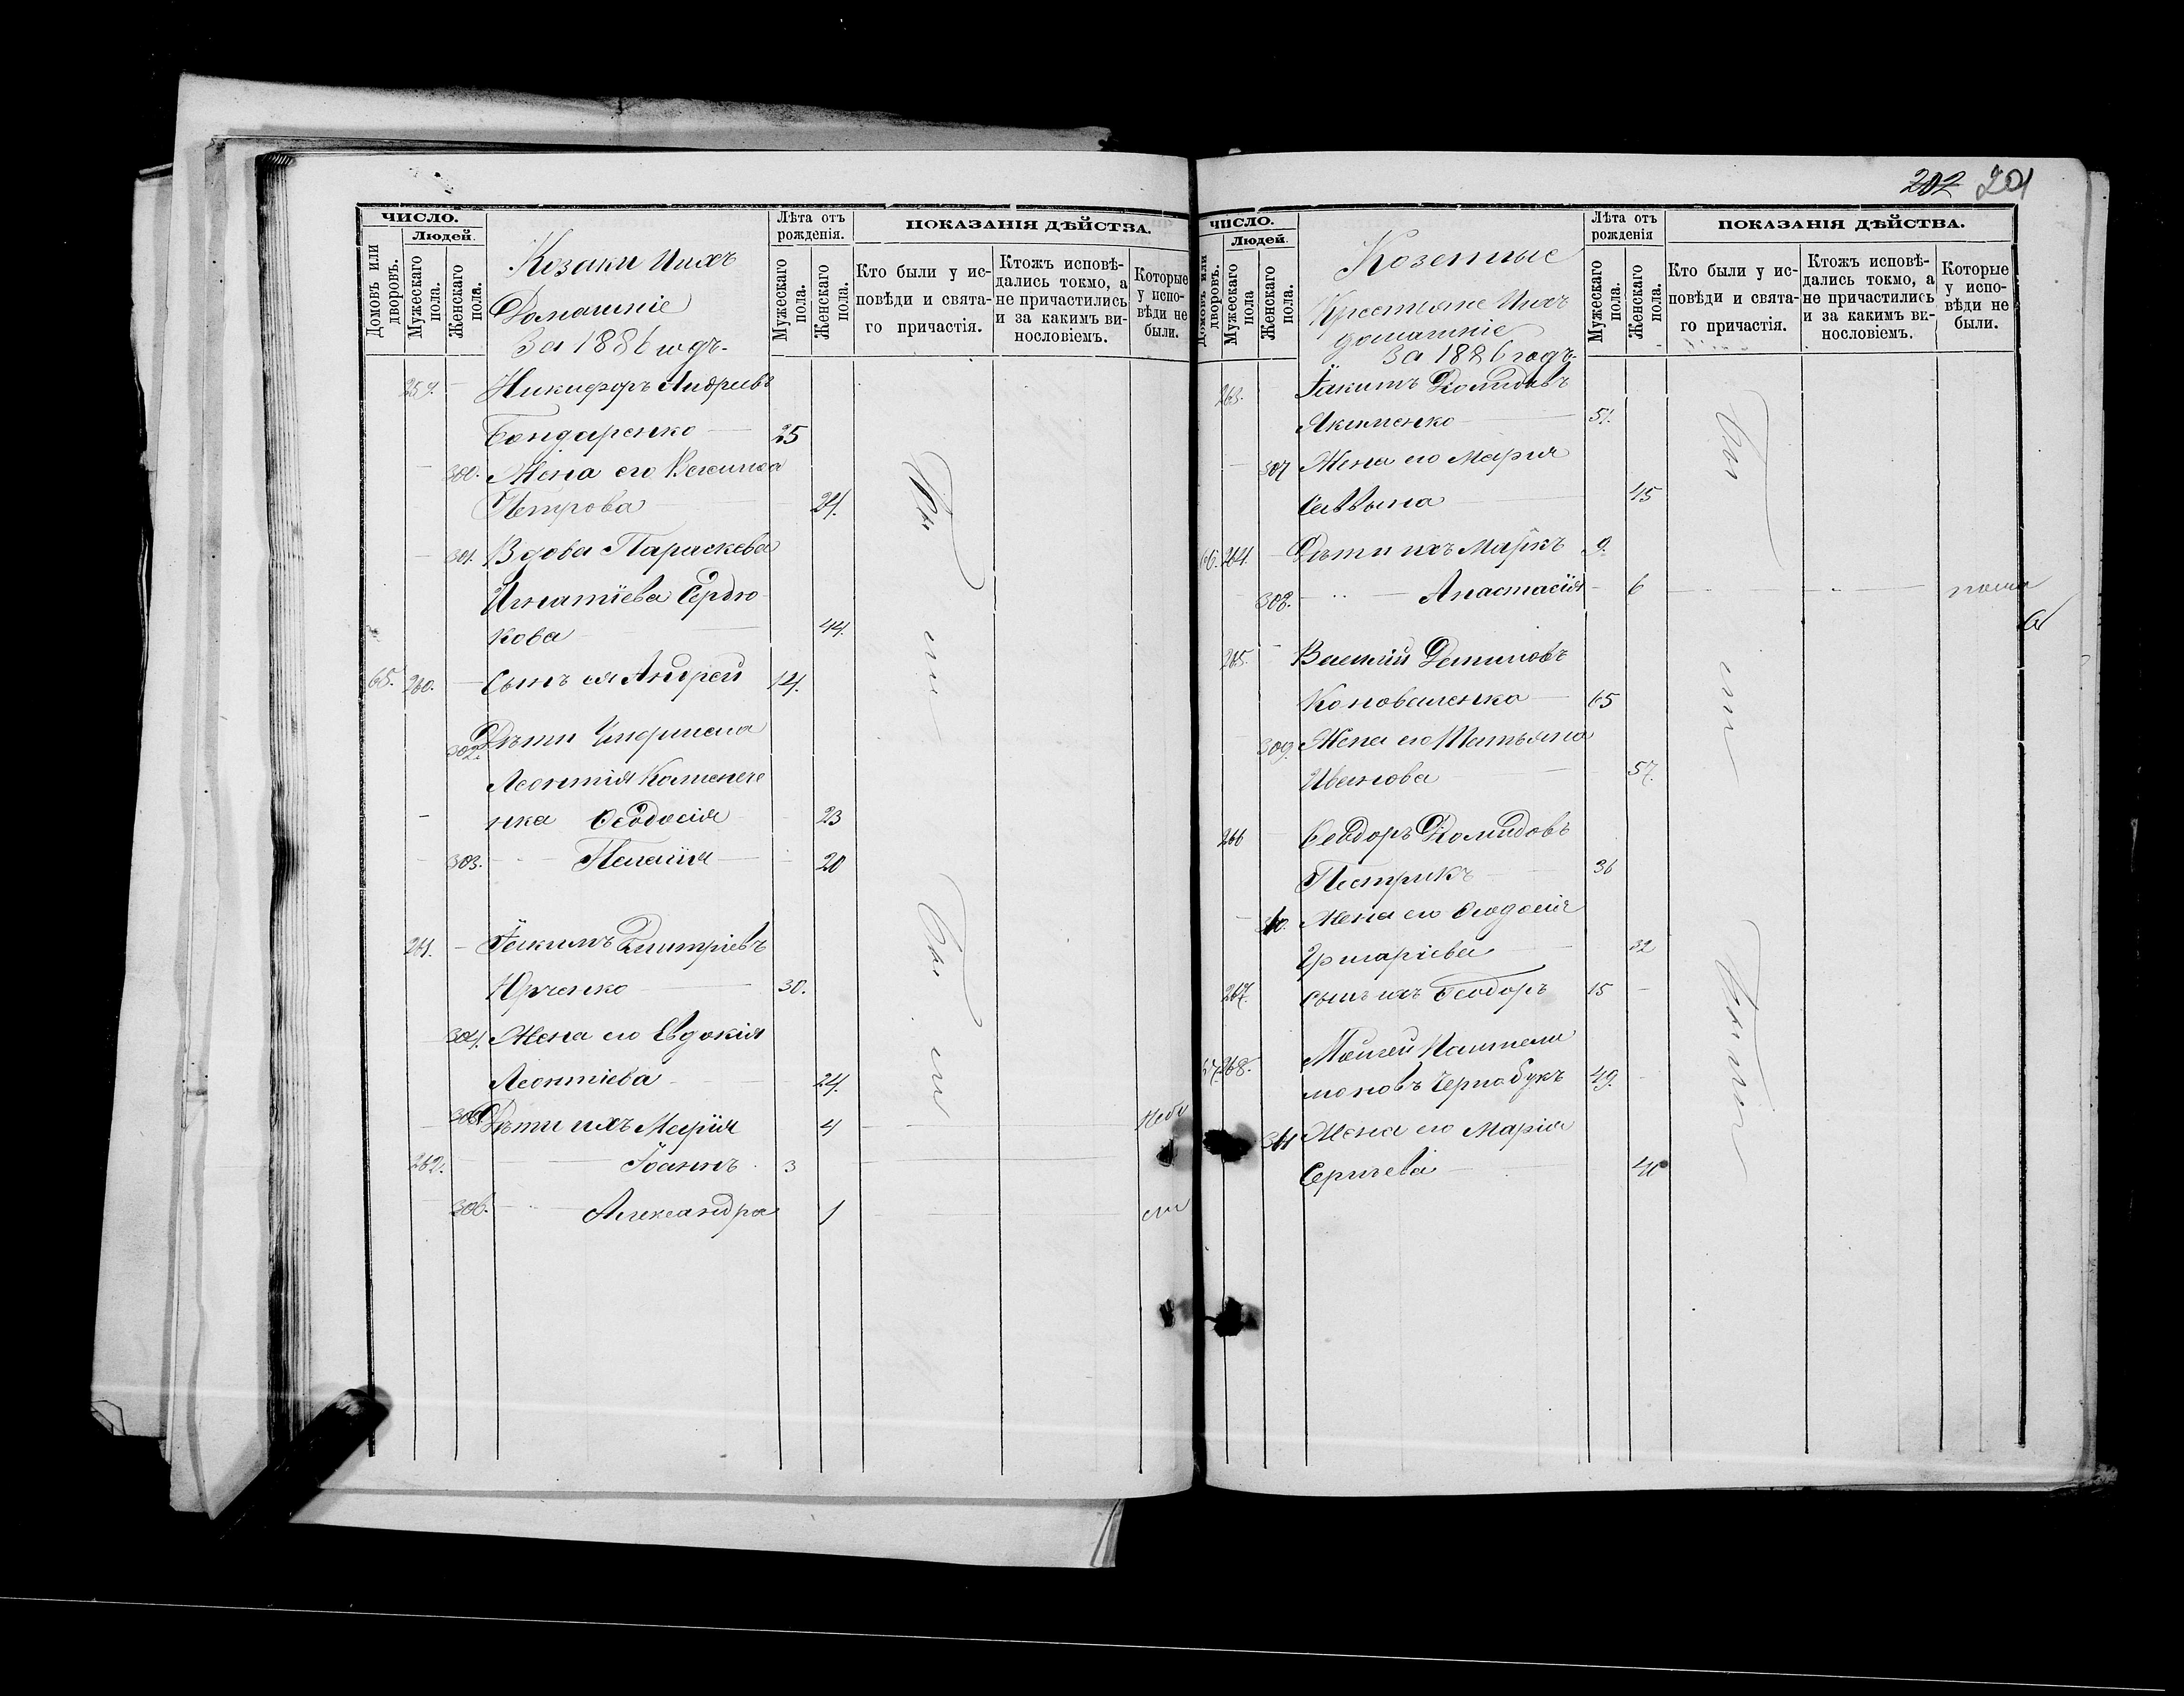 202 201
ЧИСЛО.
Людей.
Домовъ или дворовъ.
Мужескаго пола.
Женскаго пола.
Козаки ихъ
Домашніе
За 1886 годъ.
Лѣта отъ рожденія.
Мужескаго пола.
Женскаго пола.
ПОКАЗАНІЯ ДѢЙСТВА.
Кто были у ис-
повѣди и свята-
го причастія.
Ктожъ исповѣ-
дались токмо, а
не причастились
и за какимъ ви-
нословіемъ.
Которые
у испо-
вѣди не
были.
259. Никифоръ Андреевъ
Бондаренко 25
300. Жена его
Петрова 24.
301. Вдова Параскева
Игнатіева Сердю
кова 44.
65. 260. Сынъ ея Андрей 14.
302. Дѣти Умершаго
Леонтія
нка Ѳеодосія 23
303. Пелагія 20
261. Іакимъ Димитріевъ
Юрченко 30.
304. Жена его Евдокія
Леонтіева 24.
305. Дѣти ихъ Марія 4 Небы
262. Іоаннъ 3
306. Александра 1 ли
Были
Были
ЧИСЛО.
Людей.
Домовъ или дворовъ.
Мужескаго пола
Женскаго пола.
Козенные
Крестьяне ихъ
домашніе
За 1886 годъ.
Лѣта отъ рожденія
Мужескаго пола.
Женскаго пола.
ПОКАЗАНІЯ ДѢЙСТВА.
Кто были у ис-
повѣди и свята-
го причастія.
Ктожъ исповѣ-
дались токмо, а
не причастились
и за какимъ ви-
нословіемъ.
Которые
у испо-
вѣди не
были.
263. Іакимъ Діомидовъ
Якименко 51.
307 Жена его Марія
Саввина 45
66. 264. Дѣти ихъ Маркъ 9.
308. Анастасія 6
265. Василій
Коноваленко 65
309. Жена его Татьяна
Иванова 57.
266 Ѳеодоръ Діомидовъ
Пестрикъ 36
310. Жена его Ѳеодосія
32
267. сынъ ихъ Ѳеодоръ 15
67. 268. Моисей Пантели
моновъ Чернобукъ 49.
311 Жена его Марія
Сергіева
Были
Были